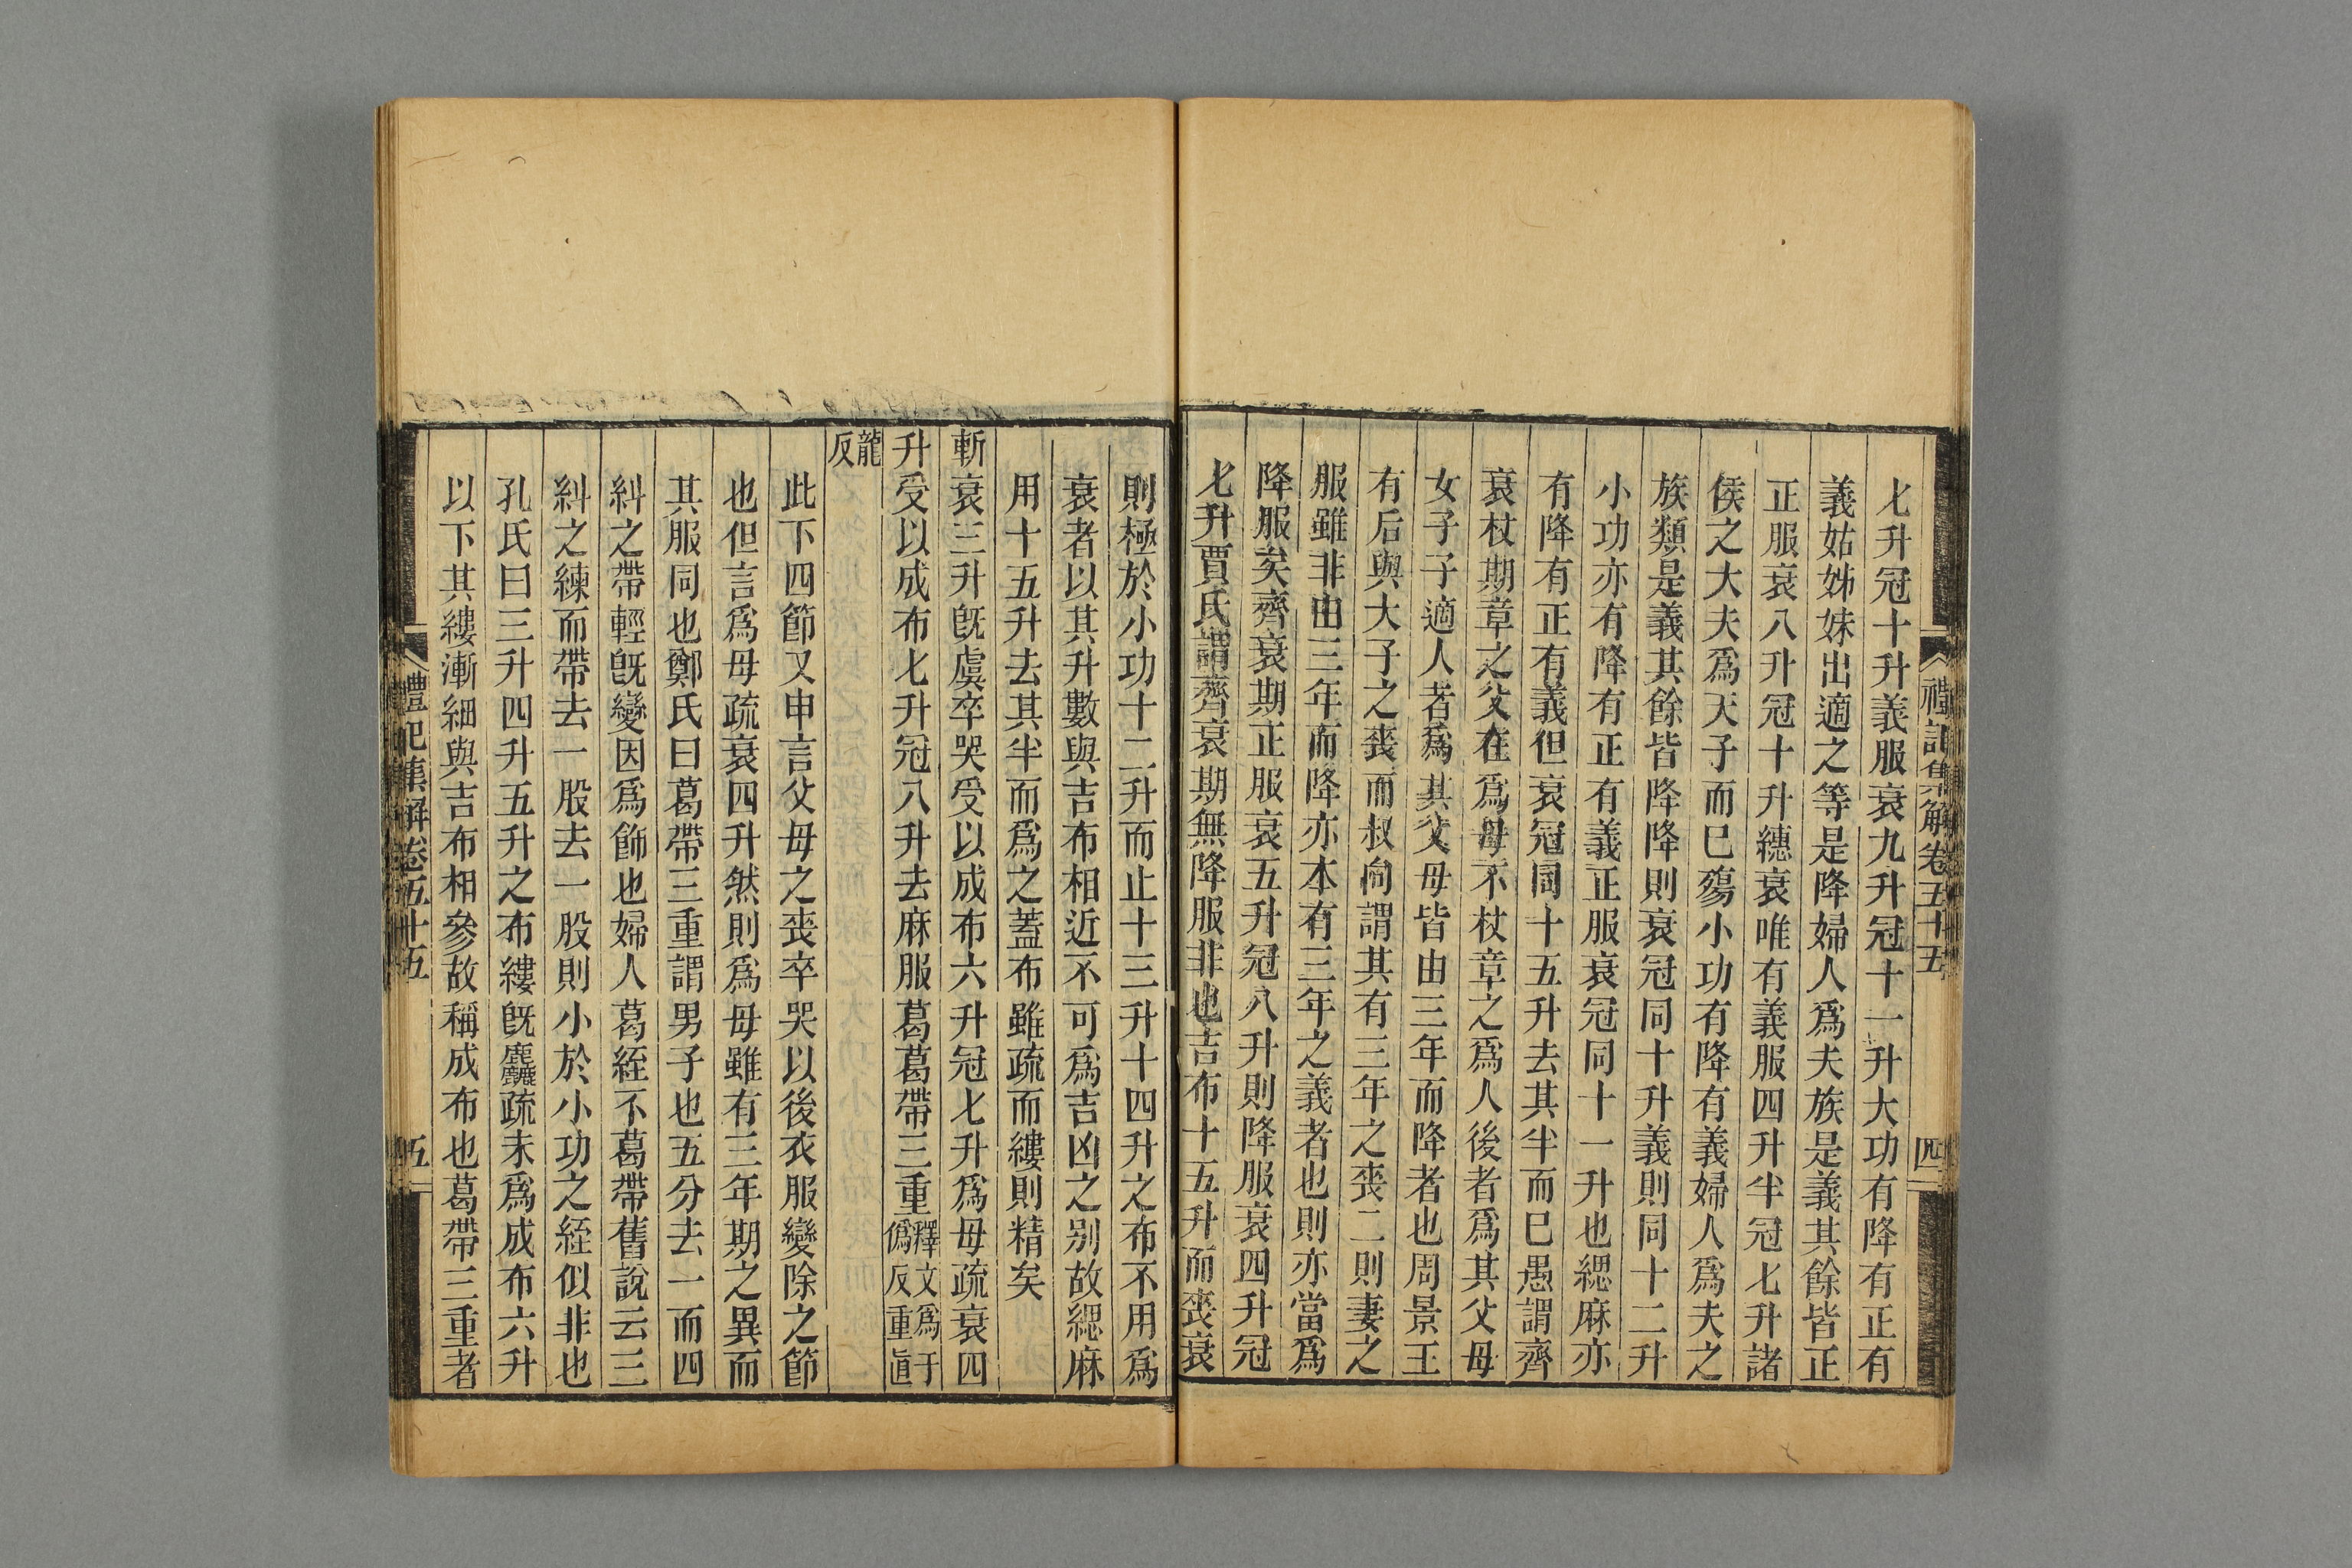 禮記集解卷五十五 四
七升冠十升義服衰九升冠十一升大功有降有正有
義姑姊妹出適之等是降婦人爲夫族是義其餘皆正
正服衰八升冠十升繐衰唯有義服四升半冠七升諸
侯之大夫爲天子而巳殤小功有降有義婦人爲夫之
族類是義其餘皆降降則衰冠同十升義則同十二升
小功亦有降有正有義正服衰冠同十一升也緦麻亦
有降有正有義但衰冠同十五升去其半而巳愚謂齊
衰杖期章之父在爲母不杖章之爲人後者爲其父母
女子子適人者爲其父母皆由三年而降者也周景王
有后與大子之喪而叔向謂其有三年之喪二則妻之
服雖非由三年而降亦本有三年之義者也則亦當爲
降服矣齊衰期正服衰五升冠八升則降服衰四升冠
七升賈氏謂齊衰期無降服非也吉布十五升而喪衰
則極於小功十二升而止十三升十四升之布不用爲
衰者以其升數與吉布相近不可爲吉凶之别故緦麻
用十五升去其半而爲之蓋布雖疏而縷則精矣
斬衰三升旣虞卒哭受以成布六升冠七升爲母疏衰四
升受以成布七升冠八升去麻服葛葛帶三重釋文爲于僞反重直
龍反
此下四節又申言父母之喪卒哭以後衣服變除之節
也但言爲母疏衰四升然則爲母雖有三年期之異而
其服同也鄭氏曰葛帶三重謂男子也五分去一而四
糾之帶輕旣變因爲飾也婦人葛絰不葛帶舊說云三
糾之練而帶去一股去一股則小於小功之絰似非也
孔氏曰三升四升五升之布縷旣麤疏未爲成布六升
以下其縷漸細與吉布相參故稱成布也葛帶三重者
禮記集解卷五十五 五